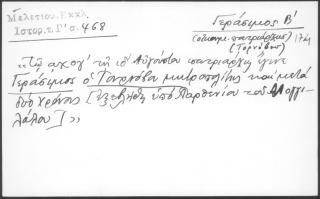 Μελετίου. Εκκλ.
Ιστορ. τ. Γ' σ. 468
Γεράσιμος Β'
(οἰκουμ. πατριάρχης) 1674
(Τορνόβου)
«Τῷ αχογ' τῇ ιδ' Αὐγούστου πατριάρχης ἔγινε
Γεράσιμος ὁ Τορνόβου μητροπολίτης καὶ μετὰ
δύο χρόνους [ἐξεβλήθη ὑπὸ Παρθενίου τοῦ Μογγι-
λάλου]»